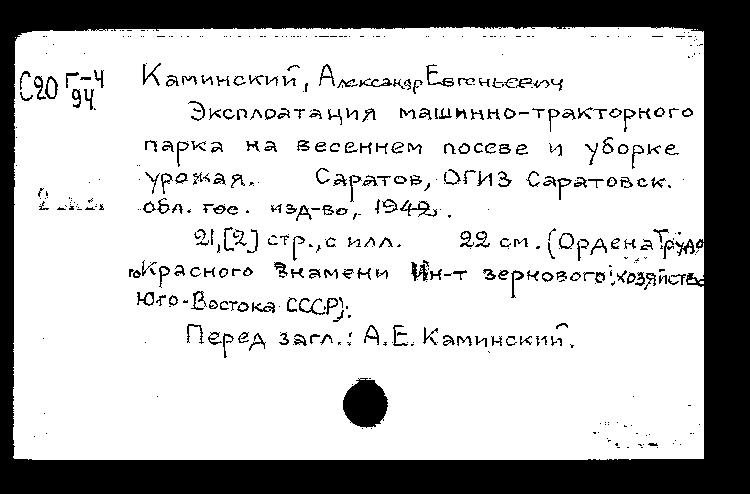 С20 Г-4/94 Каминский, Александр Евгеньевич
Эксплоатация машинно-тракторного
парка на весеннем посеве и уборке
урожая. Саратов, ОГИЗ Саратовск.
обл. гос. изд-во, 1942.
21,[2] стр., с илл. 22 см. (Ордена Трудо
го Красного Знамени Ин-т зернового хозяйства
Юго-Востока СССР).
Перед загл.: А.Е. Каминский.